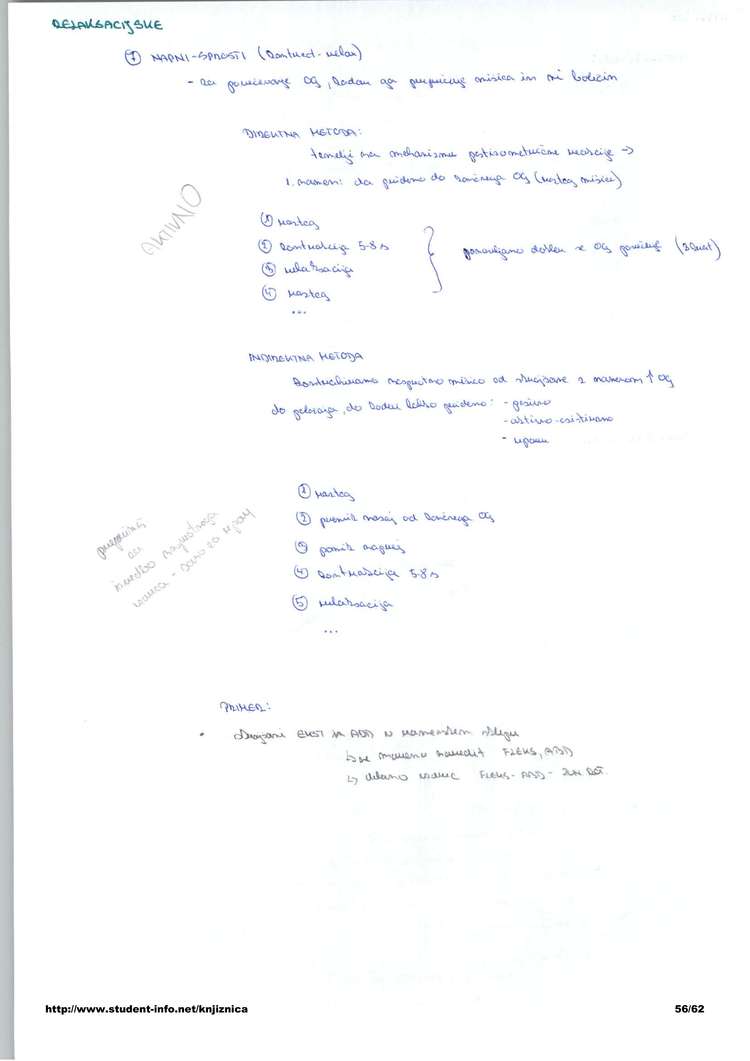 RELAKSACIJSKE
① NAPNI-SPROSTI (Contract-relax)
- za povečevanje OG, kadar ga preprečuje mišica in ni bolečin
DIREKTNA METODA:
temelji na mehanizmu postizometrične relaksacije →
1. namen: da pridemo do končnega OG (razteg mišice)
AKTIVNO
① razteg
② kontrakcija 5-8 s
③ relaksacija
④ razteg
...
ponavljamo dokler se OG povečuje (3krat)
INDIREKTNA METODA
kontrahiramo nasprotno mišico od skrajšane z namenom ↑ OG
do položaja, do kamor lahko pridemo: - pasivno
- aktivno-asistirano
- upom
① razteg
② premik nazaj od končnega OG
③ pomik naprej
④ kontrakcija 5-8 s
⑤ relaksacija
...
izvedbo nasprotnega
vzorca - samo za upom
PRIMER:
• skrajšani EKST in ADD v ramenskem sklepu
↳ ne moremo naredit FLEKS, ABD
↳ delamo vzorec FLEKS - ABD - ZUN. ROT.
http://www.student-info.net/knjiznica
56/62